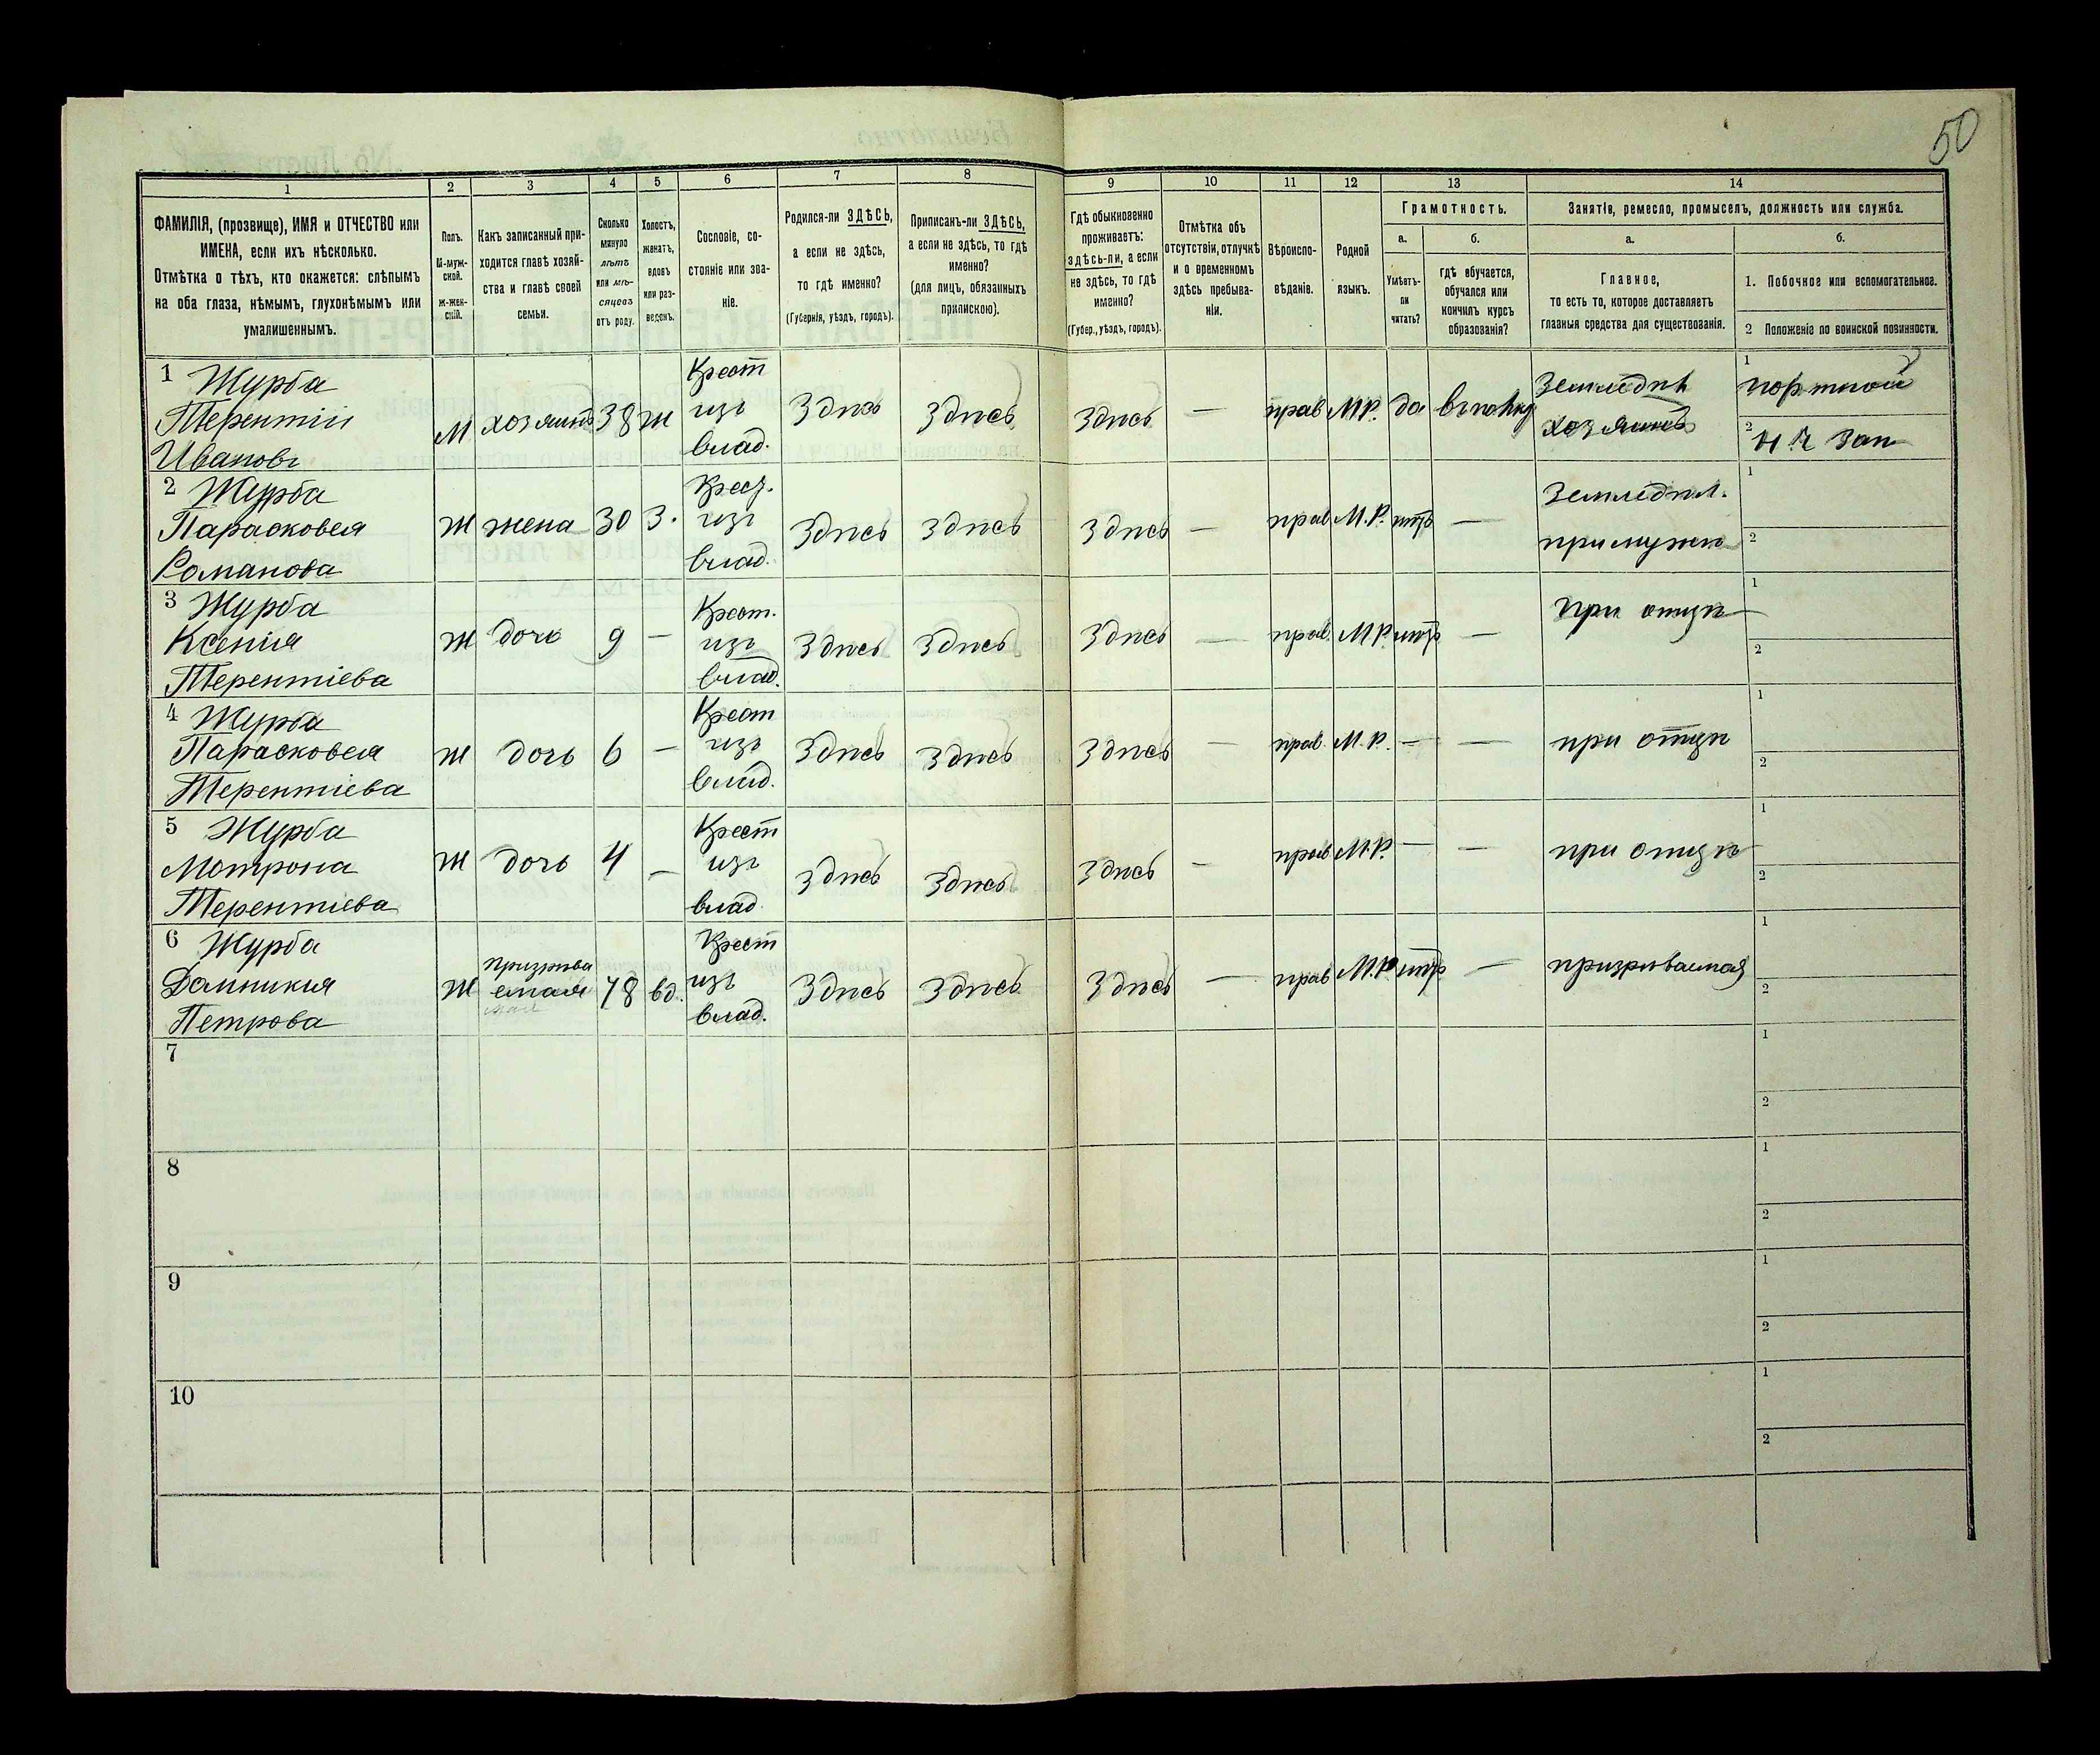 50
1 2 3 4 5 6 7 8 9 10 11 12 13 14
ФАМИЛІЯ, (прозвище), ИМЯ и ОТЧЕСТВО или
ИМЕНА, если ихъ нѣсколько.
Отмѣтка о тѣхъ, кто окажется: слѣпымъ
на оба глаза, нѣмымъ, глухонѣмымъ или
умалишеннымъ.
Полъ.
М-муж-
ской.
Ж-жен-
скій.
Какъ записанный при-
ходится главѣ хозяй-
ства и главѣ своей
семьи.
Сколько
минуло
лѣтъ
или мѣ-
сяцевъ
отъ роду.
Холостъ,
женатъ,
вдовъ
или раз-
веденъ.
Сословіе, со-
стояніе или зва-
ніе.
Родился-ли ЗДѢСЬ,
а если не здѣсь,
то гдѣ именно?
(Губернія, уѣздъ, городъ).
Приписанъ-ли ЗДѢСЬ,
а если не здѣсь, то гдѣ
именно?
(для лицъ, обязанныхъ
припискою).
Гдѣ обыкновенно
проживаетъ:
здѣсь-ли, а если
не здѣсь, то гдѣ
именно?
(Губер., уѣздъ, городъ).
Отмѣтка объ
отсутствіи, отлучкѣ
и о временномъ
здѣсь пребыва-
ніи.
Вѣроиспо-
вѣданіе.
Родной
языкъ.
Грамотность.
а.
Умѣетъ-
ли
читать?
б.
гдѣ обучается,
обучался или
кончилъ курсъ
образованія?
Занятіе, ремесло, промыселъ, должность или служба.
а.
Главное,
то есть то, которое доставляетъ
главныя средства для существованія.
б.
1. Побочное или вспомогательное.
2 Положеніе по воинской повинности.
1 Журба
Терентій
Ивановъ
М хозяинъ 38 ж
Крест
изъ
влад.
Здѣсь Здѣсь Здѣсь — прав М.Р. да
Земледѣл
хозяинъ
1 портной
2
2 Журба
Парасковея
Романова
Ж жена 30 З.
Крест.
изъ
влад.
Здѣсь Здѣсь Здѣсь — прав М.Р. нѣтъ —
Земледѣл.
при мужѣ
1
2
3 Журба
Ксенія
Терентіева
Ж дочь 9 —
Крест.
изъ
влад.
Здѣсь Здѣсь Здѣсь — прав. М.Р. нѣтъ —
при отцѣ
1
2
4 Журба
Парасковея
Терентіева
Ж дочь 6 —
Крест
изъ
влад.
Здѣсь Здѣсь Здѣсь — прав. М.Р. — —
при отцѣ
1
2
5 Журба
Мотрона
Терентіева
Ж дочь 4 —
Крест
изъ
влад
Здѣсь Здѣсь Здѣсь — прав М.Р. — —
при отцѣ
1
2
6 Журба
Домникія
Петрова
Ж призрѣва
емая
78 вд.
Крест
изъ
влад.
Здѣсь Здѣсь Здѣсь — прав М.Р. нѣтъ —
призрѣваемая
1
2
7
1
2
8
1
2
9
1
2
10
1
2